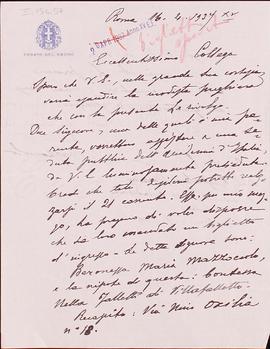 SENATO DEL REGNO
Roma 16. 4. 1937 XV
Collega
Spero che V. S., nella grande sua cortesia,
vorrà esaudire la modesta preghiera
che con la presente Le rivolgo.
Due Signore, una delle quali è mia pa-
rente, vorrebbero assistere a una se-
duta pubblica dell'Accademia d'Italia,
da V. S. presieduta.
Credo che tale desiderio potrebbe realiz-
zarsi il 21 corrente. Esse, per mio mez-
zo, La pregano di voler disporre
che sia loro mandato un biglietto
d'ingresso. Le dette signore sono:
Baronessa Maria Mazzoccolo,
e la nipote di questa: Contessa
Nella Falletti di Villafalletto.
Recapito: Via Nino Oxilia
n° 18.